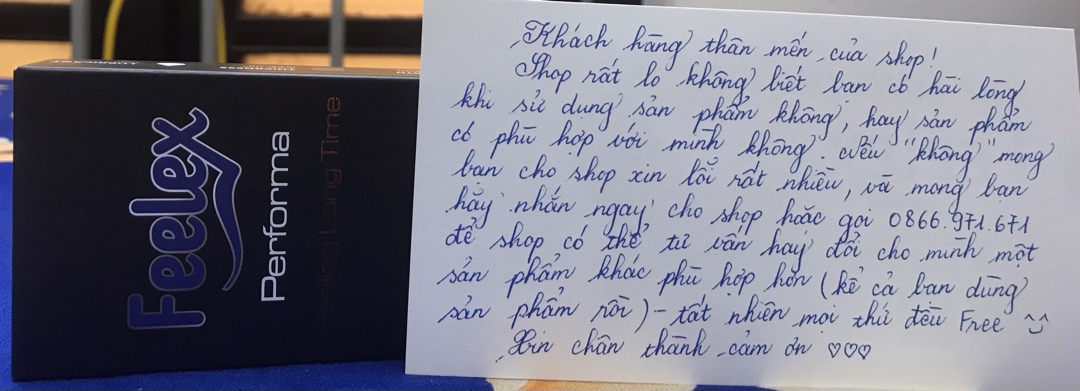 Feelex
Performa
Feeling Long Time
Khách hàng thân mến của shop!
Shop rất lo không biết bạn có hài lòng
khi sử dụng sản phẩm không, hay sản phẩm
có phù hợp với mình không. Nếu "không" mong
bạn cho shop xin lỗi rất nhiều, và mong bạn
hãy nhắn ngay cho shop hoặc gọi 0866.971.671
để shop có thể tư vấn hay đổi cho mình một
sản phẩm khác phù hợp hơn (kể cả bạn dùng
sản phẩm rồi) - tất nhiên mọi thứ đều Free ^^
Xin chân thành cảm ơn ♡♡♡